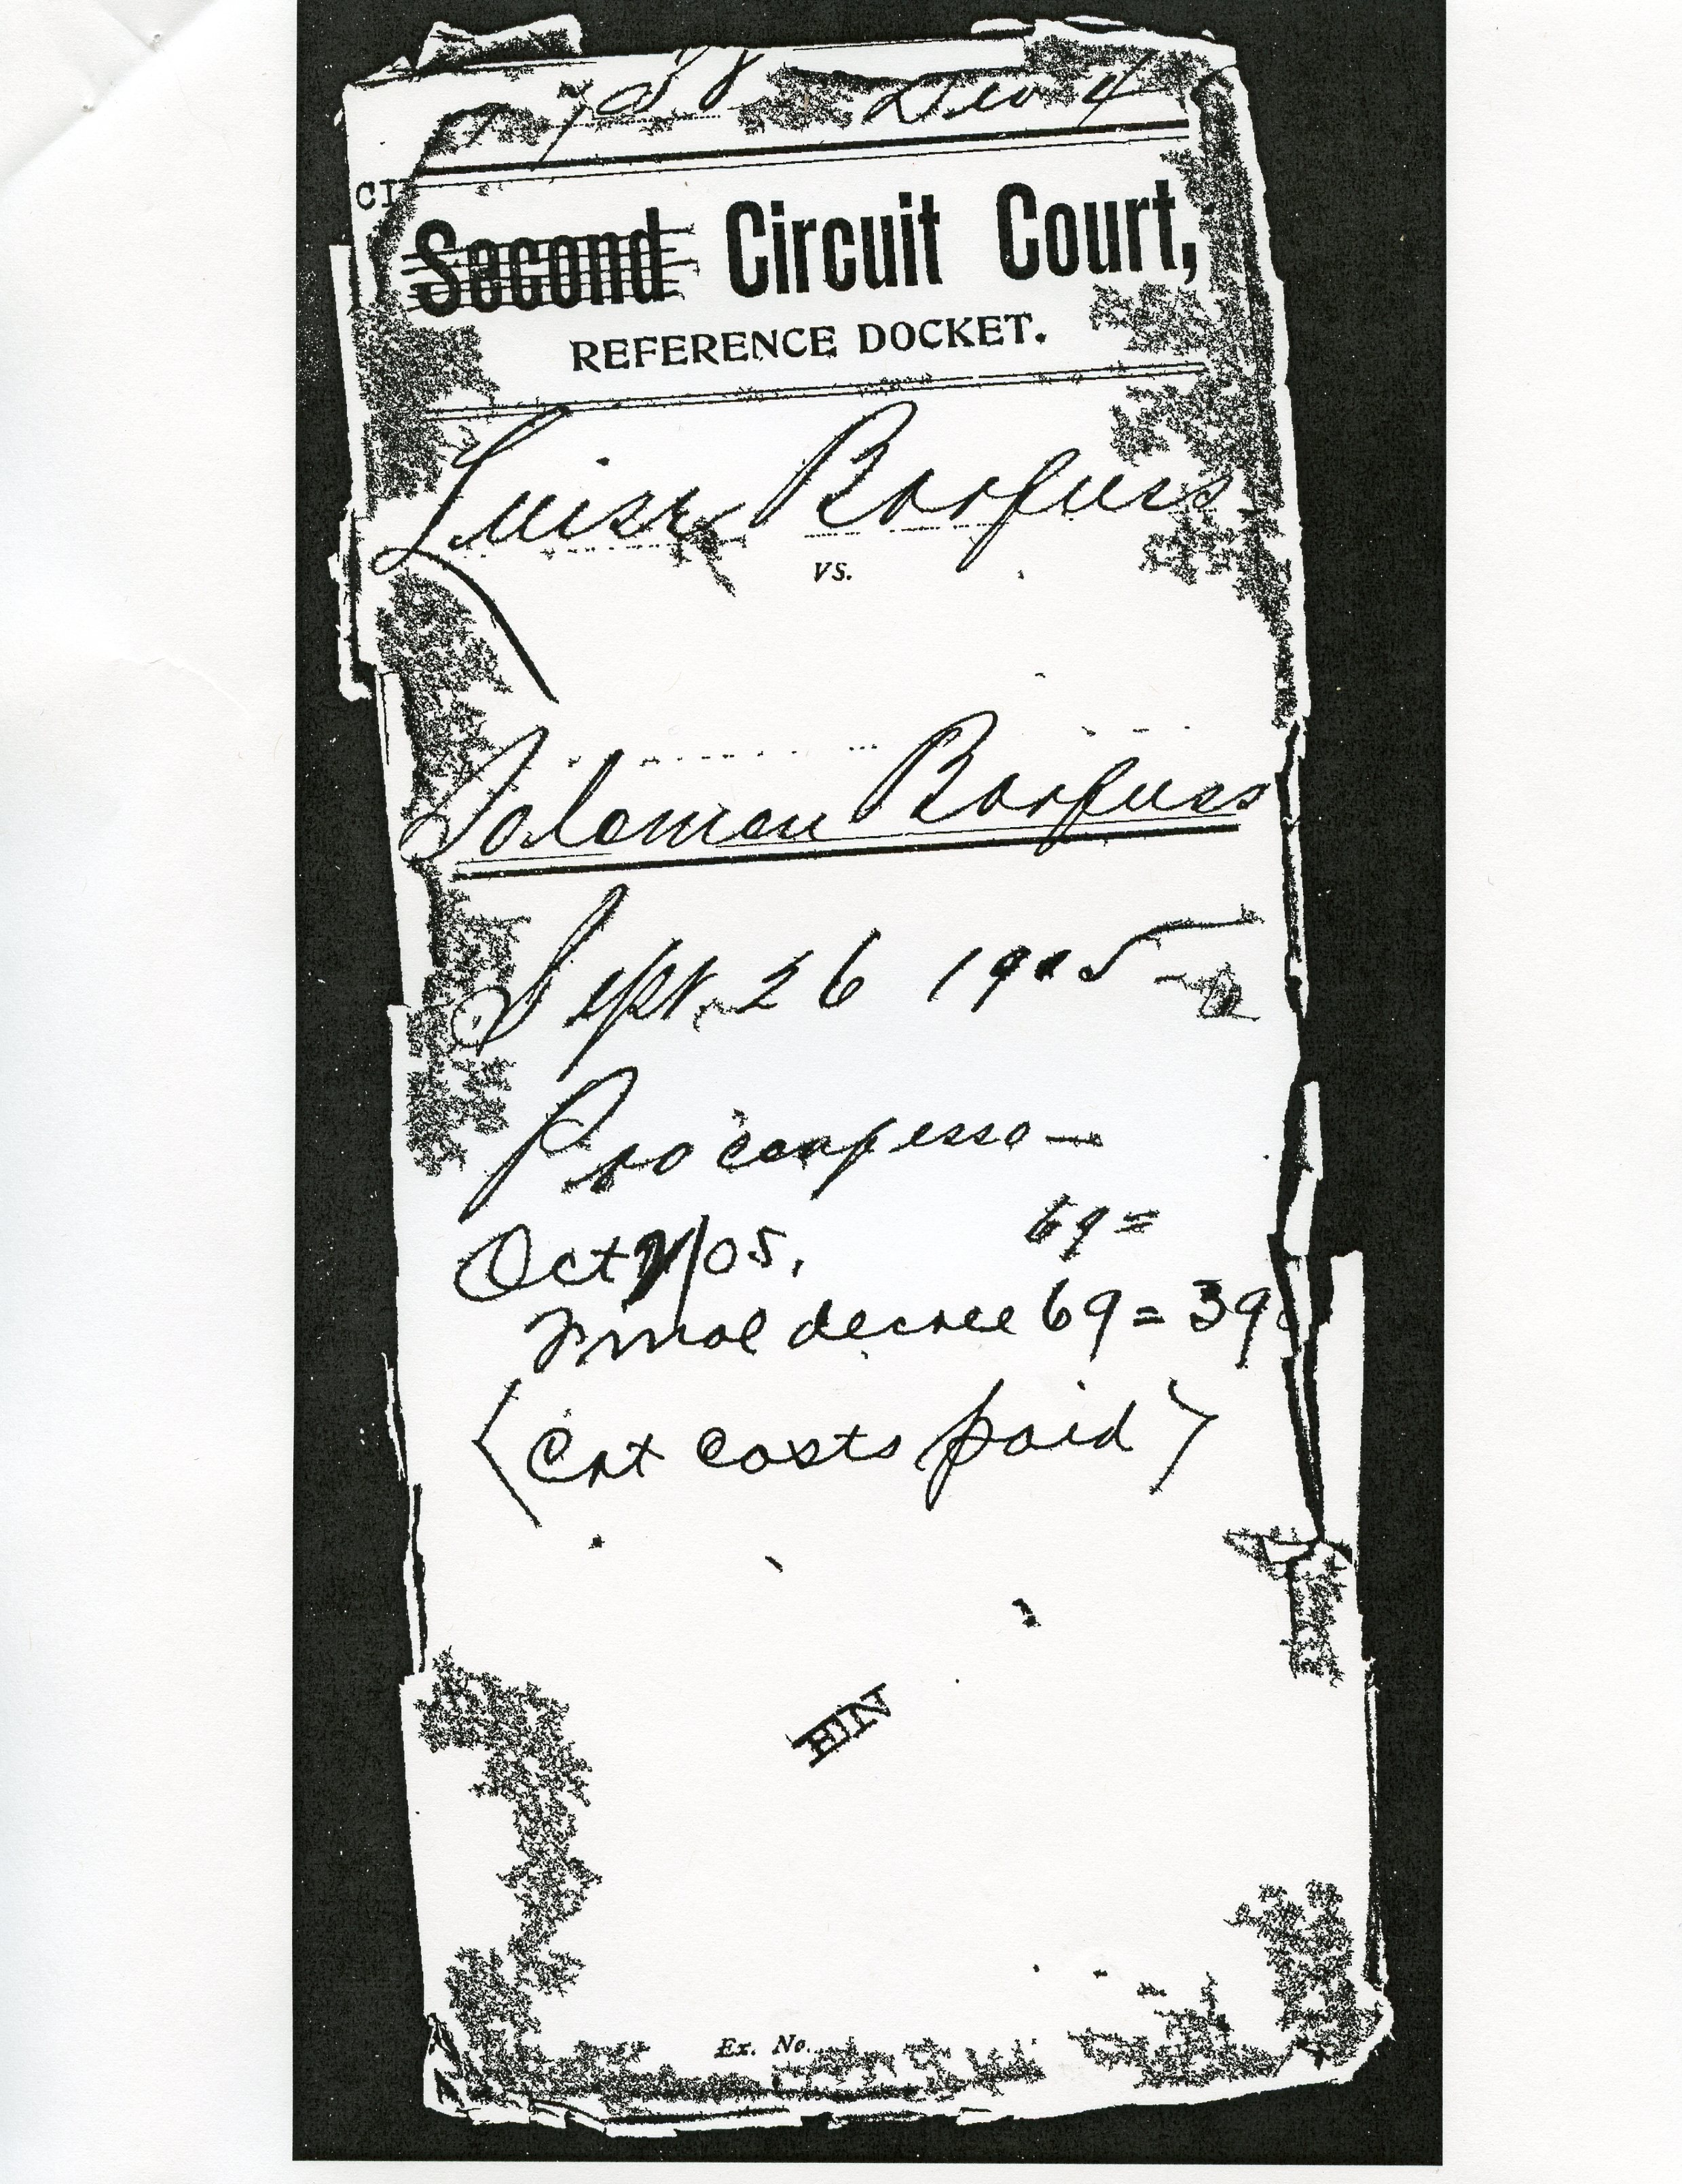 38 Div 4
CI
Second Circuit Court,
REFERENCE DOCKET.
Luise Barfuss
vs.
Solomon Barfuss
Sept. 26 1905
Pro confesso —
69 =
Oct /05.
Final decree 69 = 39
(Crt costs paid)
Ex. No.